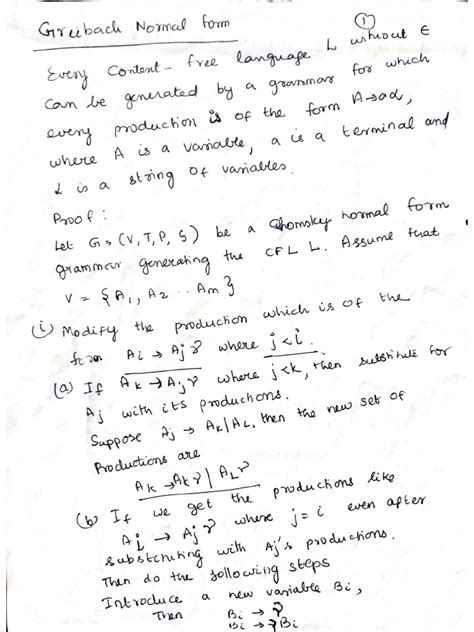 Greibach Normal form
①
Every Context-free language L without ε
can be generated by a grammar for which
every production is of the form A→aα,
where A is a variable, a is a terminal and
α is a string of variables.
Proof:
Let G=(V,T,P,S) be a Chomsky normal form
grammar generating the CFL L. Assume that
V = {A1, A2 .. Am}
(i) Modify the production which is of the
form Ai → Ajγ where j<i.
(a) If Ak → Ajγ where j<k, then substitute for
Aj with its productions.
Suppose Aj → Ak|AL, then the new set of
Productions are
Ak → Akγ | ALγ
(b) If we get the productions like
Ai → Ajγ where j=i even after
substituting with Aj's productions.
Then do the following steps
Introduce a new variable Bi,
Then Bi → γ
Bi → γBi